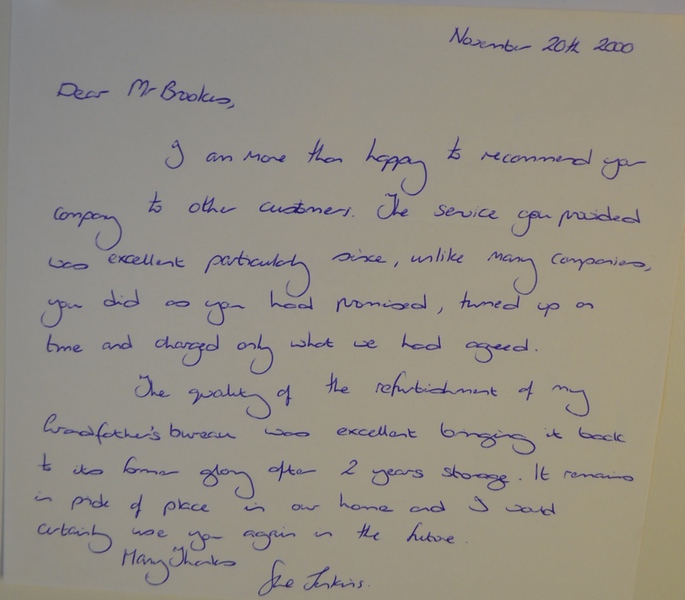 November 20th 2000
Dear Mr Brookes,
I am more than happy to recommend your
company to other customers. The service you provided
was excellent particularly since, unlike many companies,
you did as you had promised, turned up on
time and charged only what we had agreed.
The quality of the refurbishment of my
Grandfather's bureau was excellent bringing it back
to its former glory after 2 years storage. It remains
in pride of place in our home and I would
certainly use you again in the future.
Many Thanks
Jenkins.